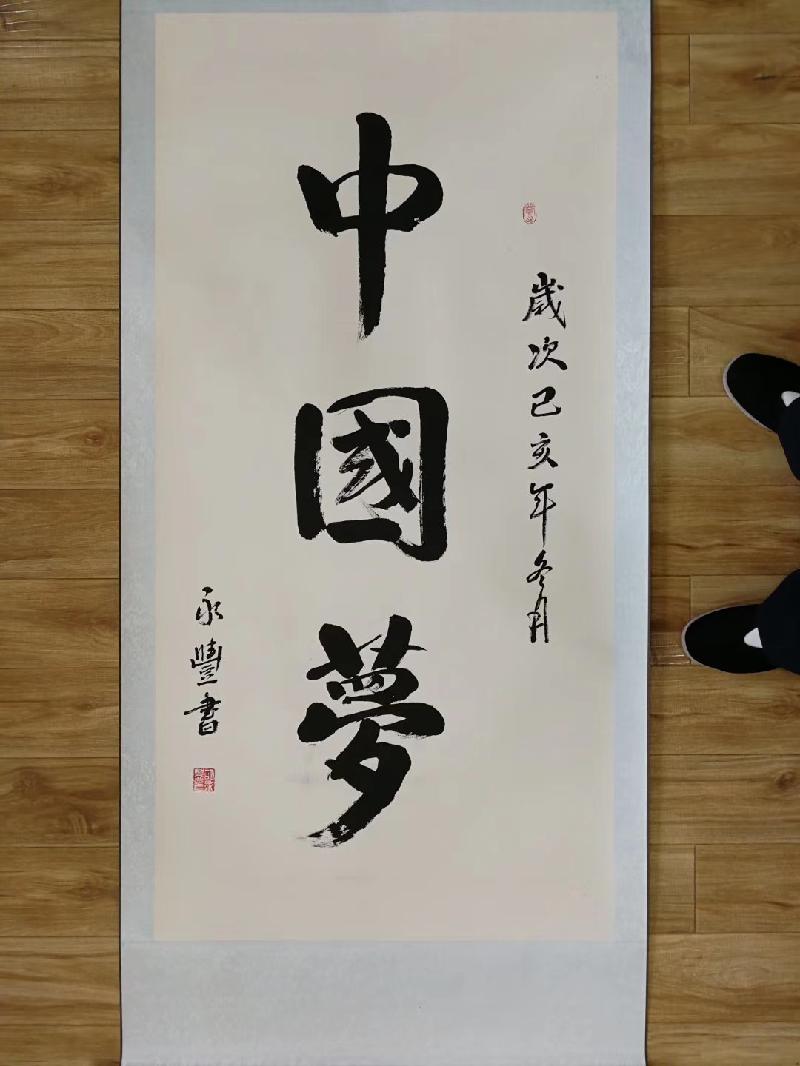 歲次己亥年冬月
中國夢
永豐書